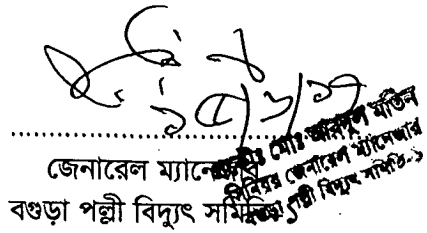 জেনারেল ম্যানেজার
বগুড়া পল্লী বিদ্যুৎ সমিতি-১
মোঃ আবদুল মতিন
সিনিয়র জেনারেল ম্যানেজার
বগুড়া পল্লী বিদ্যুৎ সমিতি-১